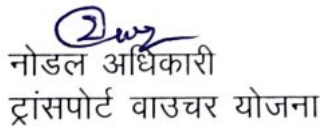 नोडल अधिकारी
ट्रांसपोर्ट वाउचर योजना